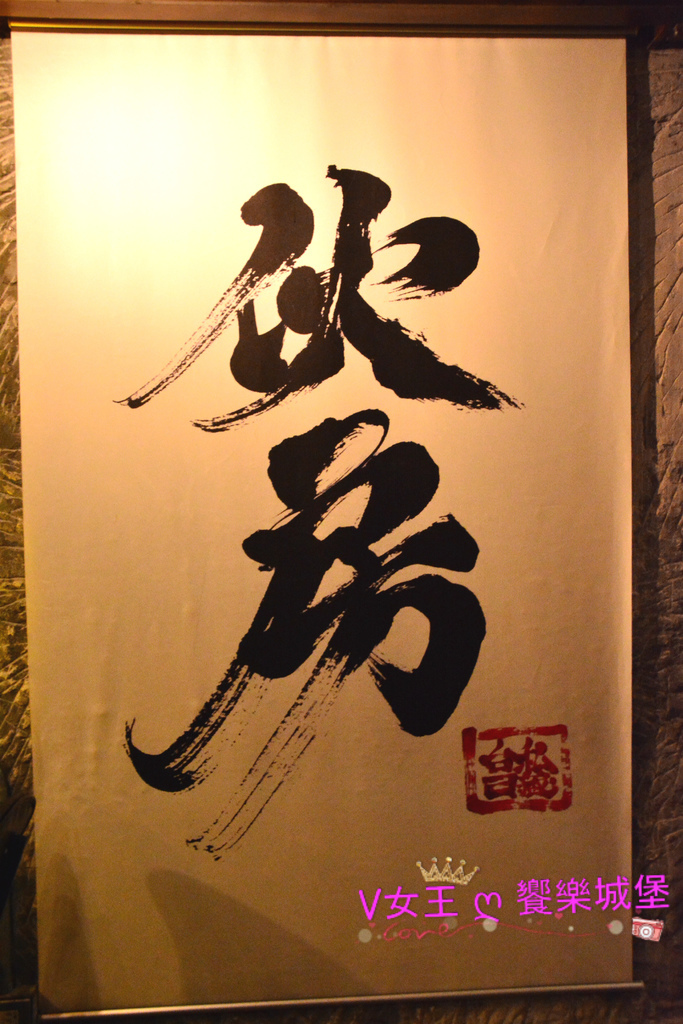 伙房
V女王 ღ 饗樂城堡
Love